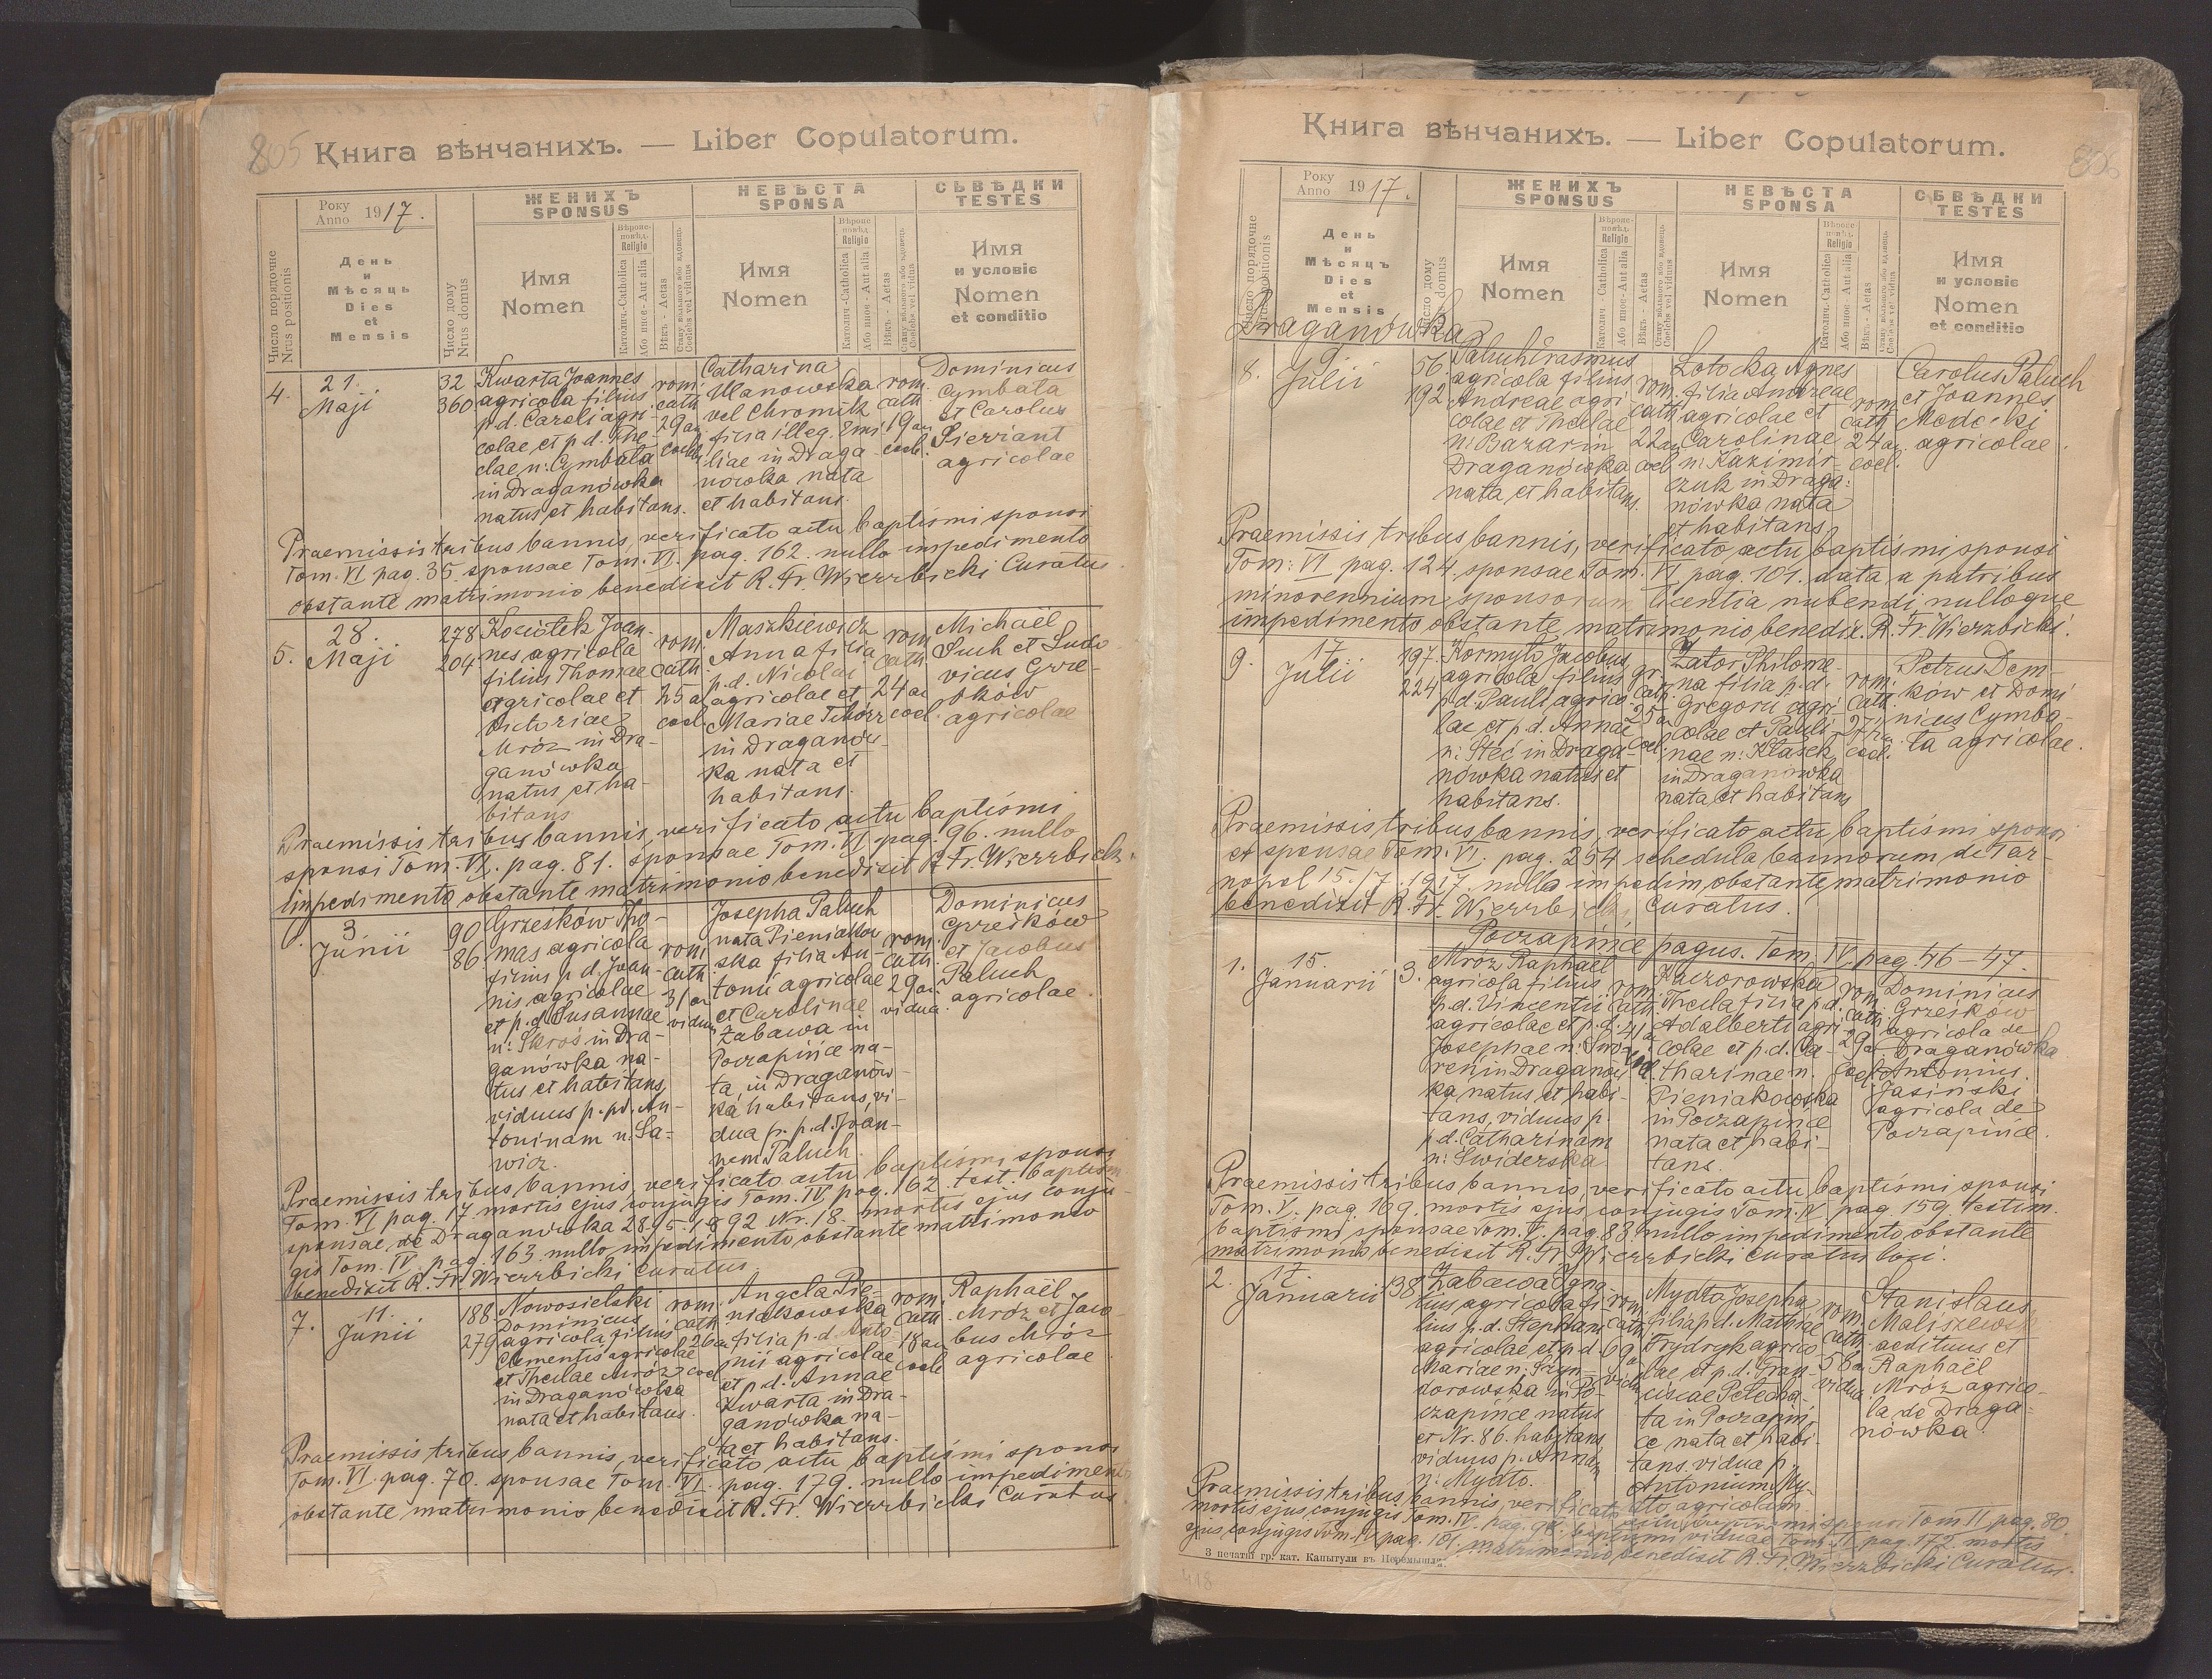 805
Книга вѣнчанихъ. — Liber Copulatorum.
Число порядочне
Nrus positionis
Року
Anno 1917.
День
и
Мѣсяць
Dies
et
Mensis
Число дому
Nrus domus
ЖЕНИХЪ
SPONSUS
Имя
Nomen
Вѣроис-
повѣд.
Religio
Католич.-Catholica
Або инос-Aut alia
Вѣкъ - Aetas
Стану вольного або вдовець
Coelebs vel viduus
НЕВѢСТА
SPONSA
Имя
Nomen
Religio
Католич.-Catholica
Або инос-Aut alia
Вѣкъ - Aetas
Coelebs vel vidua
СЬВѢДКИ
TESTES
Имя
и условіе
Nomen
et conditio
4.
21.
Maji
32
360
Kwarta Joannes
agricola filius
p.d. Caroli agri-
colae et p.d. The-
clae n: Cymbała
in Draganówka
natus et habitans.
rom.
cath
29 an
coelb
Catharina
Ulanowska
vel Chromik
filia illeg. Emi-
liae in Draga-
nówka nata
et habitans.
rom.
cath.
19 an
coel.
Dominicus
Cymbała
et Carolus
Pierriant
agricolae
Praemissis tribus bannis, verificato actu baptismi sponsi
Tom. VI pag. 35. sponsae Tom. VI. pag. 162. nullo impedimento
obstante matrimonio benedixit R. Fr. Wierzbicki Curatus.
5.
28.
Maji
278
204
Kociołek Joan-
nes, agricola
filius Thomae
agricolae et
Victoriae
Mróz in Dra-
ganówka
natus et ha-
bitans
rom.
cath
25 a
coel.
Maszkiewicz
Anna filia
p.d. Nicolai
agricolae et
Mariae Tchórz
in Draganów-
ka nata et
habitans.
rom
cath.
24 an
coel.
Michaël
Such et Ludo
vicus Grze-
śków
agricolae
Praemissis tribus bannis, verificato actu baptismi
sponsi Tom. VI. pag. 81. sponsae Tom. VI pag. 96. nullo
impedimento obstante matrimonio benedixit R. Fr. Wierzbicki.
3.
Junii
90
86
Grześków Tho-
mas agricola
filius p.d. Joan-
nis agricolae
et p.d. Susannae
n: Skroś in Dra-
ganówka na-
tus et habitans,
viduus p. p.d. An-
toninam n. Sa-
wicz.
rom
cath.
31 an
viduus
Josepha Paluch
nata Pieniakow
ska filia An-
tonii agricolae
et Carolinae
Zabawa in
Poczapińce na-
ta, in Draganów-
ka habitans, vi-
dua p. p.d. Joan-
nem Paluch.
rom.
cath.
29 an.
vidua.
Dominicus
Grześków
et Jacobus
Paluch
agricolae.
Praemissis tribus bannis, verificato actu baptismi sponsi
Tom. VI pag. 17. mortis ejus conjugis Tom. IV pag. 162. test. baptism
sponsae de Draganówka 28.5.1892 Nr. 18. mortis ejus conju-
gis Tom. IV. pag. 163. nullo impedimento obstante matrimonio
benedixit R. Fr. Wierzbicki Curatus
7.
11.
Junii
188
279
Nowosielski
Dominicus
agricola, filius
Clementis agricolae
et Theclae Mróz
in Draganówka
nata et habitans.
rom.
cath
26 an
coel
Angela Pie-
niakowska
filia p.d. Anto-
nii agricolae
et p.d. Annae
Kwarta in Dra-
ganówka na-
ta et habitans.
rom.
cath.
18 an
coel
Raphaël
Mróz et Jaco-
bus Mróz
agricolae
Praemissis tribus bannis, verificato actu baptismi sponsi
Tom. VI. pag. 70. sponsae Tom. VI. pag. 179. nullo impedimento
obstante matrimonio benedixit R. Fr. Wierzbicki Curatus
806
Книга вѣнчанихъ. — Liber Copulatorum.
Число порядочне
Nrus positionis
Року
Anno 1917.
День
и
Мѣсяцъ
Dies
et
Mensis
Число дому
domus
ЖЕНИХЪ
SPONSUS
Имя
Nomen
Вѣроис-
повѣд.
Religio
Католич.-Catholica
Або инос-Aut alia
Вѣкъ - Aetas
Стану вольного або вдовець
Coelebs vel viduus
НЕВѢСТА
SPONSA
Имя
Nomen
Religio
Католич.-Catholica
Або инос-Aut alia
Вѣкъ - Aetas
СЬВѢДКИ
TESTES
Имя
и условіе
Nomen
et conditio
Draganówka
8.
Julii
56.
192
Paluch Erasmus
agricola filius
Andreae agri-
colae et Theclae
n: Bazarin
Draganówka
nata et habitans.
rom.
cath
22 an
coel
Łotocka Agnes
filia Andreae
agricolae et
Carolinae
n: Kazimir-
czuk in Draga-
nówka nata
et habitans
rom
cath
24 an.
coel.
Carolus Paluch
et Joannes
Medecki
agricolae.
Praemissis tribus bannis, verificato actu baptismi sponsi
Tom: VI pag. 124. sponsae Tom. VI pag. 101. data a patribus
minorennium sponsorum licentia nubendi, nulloque
impedimento obstante matrimonio benedix. R. Fr. Wierzbicki.
9.
17.
Julii
197.
224
Kormyło Jacobus
agricola filius
p.d. Pauli agrico-
lae et p.d. Annae
n: Steć in Draga-
nówka natus et
habitans.
gr.
cath.
25 a
coel.
Zator Philome-
na filia p.d.
Gregorii agri-
colae et Pauli-
nae n: Kłasek
in Draganówka
nata et habitans
rom.
cath.
27 an
coel.
Petrus Dem-
ków et Domi
nicus Cymba-
ła agricolae.
Praemissis tribus bannis, verificato actu baptismi sponsi
et sponsae Tom. VI. pag. 254 schedula bannorum de Tar-
nopol 15./7. 1917. nullo impedim. obstante matrimonio
benedixit R. Fr. Wierzbicki, Curatus.
Poczapińce pagus. Tom. IV. pag. 46—47.
1.
15.
Januarii
3.
Mróz Raphaël
agricola filius
p.d. Vincentii
agricolae et p.d.
Josephae n:
in Draganów-
ka natus et habi-
tans, viduus p.
p.d. Catharinam
n: Swiderska
rom.
cath
41 a
vid.
Kaczorowska
Thecla filia p.d.
Adalberti agri-
colae et p.d. Ca-
tharinae n.
Pieniakowska
in Poczapińce
nata et habi-
tans.
rom
cath.
29 a
coel
Dominicus
Grześków
agricola de
Draganówka
Antonius
Jasiński
agricola de
Poczapińce.
Praemissis tribus bannis, verificato actu baptismi sponsi
Tom. V. pag. 169. mortis ejus conjugis Tom. IV pag. 159. testim.
baptismi sponsae Tom. V. pag. 83. nullo impedimento, obstante
matrimonio benedixit R. Fr. Wierzbicki Curatus loci.
2.
17.
Januarii
138
Zabawa Igna-
tius, agricola fi-
lius p.d. Stephani
agricolae, et p.d.
Mariae n: Szyn-
dorowska in Po-
czapińce natus
et Nr. 86. habitans
viduus p. Annam
n: Mydło.
rom.
cath.
69 a
vid.
Mydło Josepha
filia p.d. Mathiae
Frydryk agrico-
lae et p.d. Fran-
ciscae Petecha
ta in Poczapiń-
ce nata et habi-
tans. vidua p.
Antonium My-
dło, agricolam.
rom.
cath.
58 an
vidua
Stanislaus
Maliszewski
aedituus et
Raphaël
Mróz agrico-
la de Draga-
nówka.
Praemissis tribus bannis, verificato actu baptismi sponsi Tom II. pag. 80.
mortis ejus conjugis Tom. IV. pag. baptismi viduae pag. 172. mortis
ejus conjugis Tom. IV pag. 101. matrimonio benedixit R. Fr. Wierzbicki Curatus.
З печатні гр. кат. Капытули въ Перемышли.
418